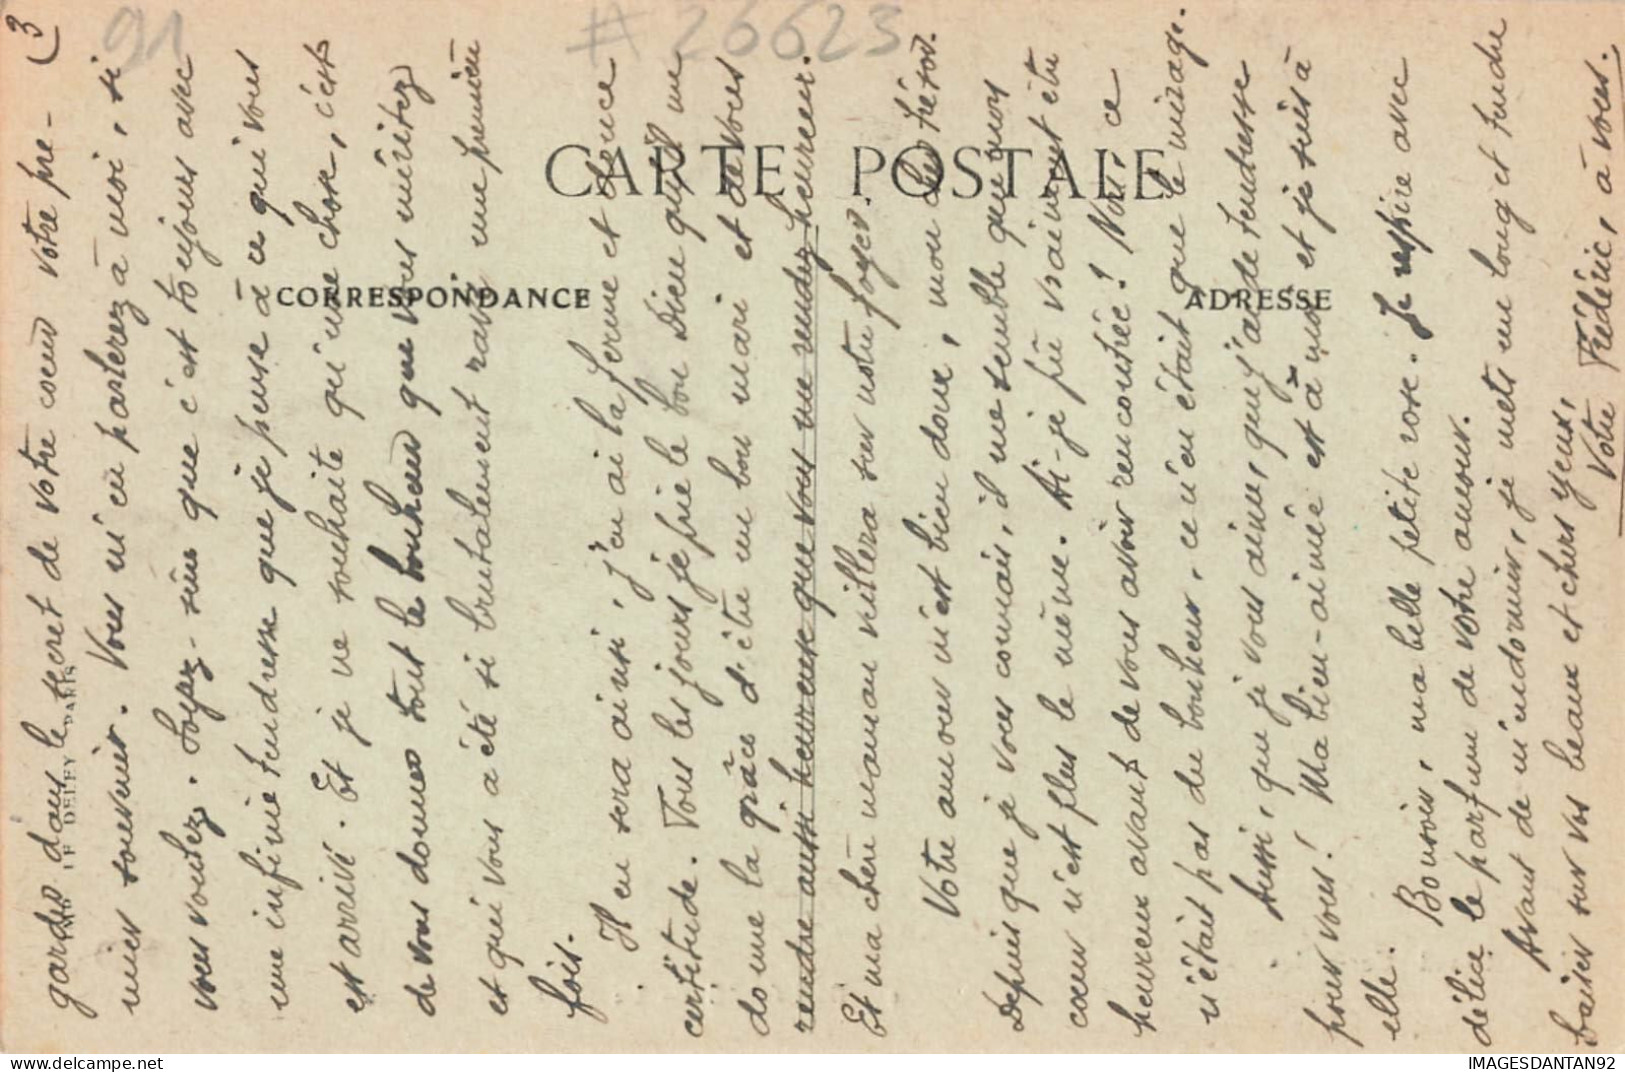 (3
91
#26623
CARTE POSTALE
CORRESPONDANCE
ADRESSE
IMP LE DELEY PARIS
gardez dans le secret de votre cœur votre pre-
mier souvenir. Vous m'en parlerez à moi, si
vous voulez. Soyez-sûre que c'est toujours avec
une infinie tendresse que je pense à ce qui vous
est arrivé. Et je ne souhaite qu'une chose, c'est
de vous donner tout le bonheur que vous méritez
et qui vous a été si brutalement ravi une première
fois.
Il en sera ainsi, j'en ai la ferme et douce
certitude. Tous les jours je prie le bon Dieu qu'il me
donne la grâce d'être un bon mari et de vous
rendre aussi heureuse que vous me rendez heureux.
Et ma chère maman veillera sur notre foyer.
Votre amour m'est bien doux, mon cher trésor.
Depuis que je vous connais, il me semble que mon
cœur n'est plus le même. Ai-je pu vraiment être
heureux avant de vous avoir rencontrée! Non, ce
n'était pas du bonheur, ce n'en était que le mirage.
Aussi, que je vous aime, que j'ai de tendresse
pour vous! Ma bien-aimée est à moi et je suis à
elle.
Bonsoir, ma belle petite rose. Je respire avec
délice le parfum de votre amour.
Avant de m'endormir, je mets un long et tendre
baiser sur vos beaux et chers yeux,
Votre Frédéric, à vous.
IMAGESDANTAN92
delcampe.net